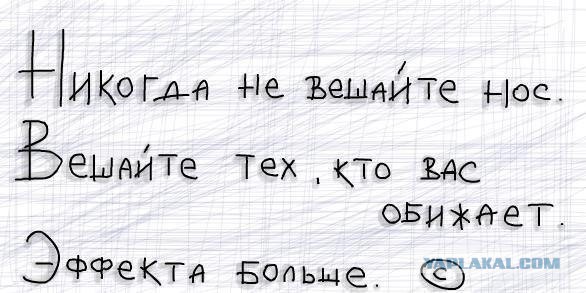 Никогда не вешайте нос.
Вешайте тех, кто вас
обижает.
Эффекта больше. ©
YAPLAKAL.COM